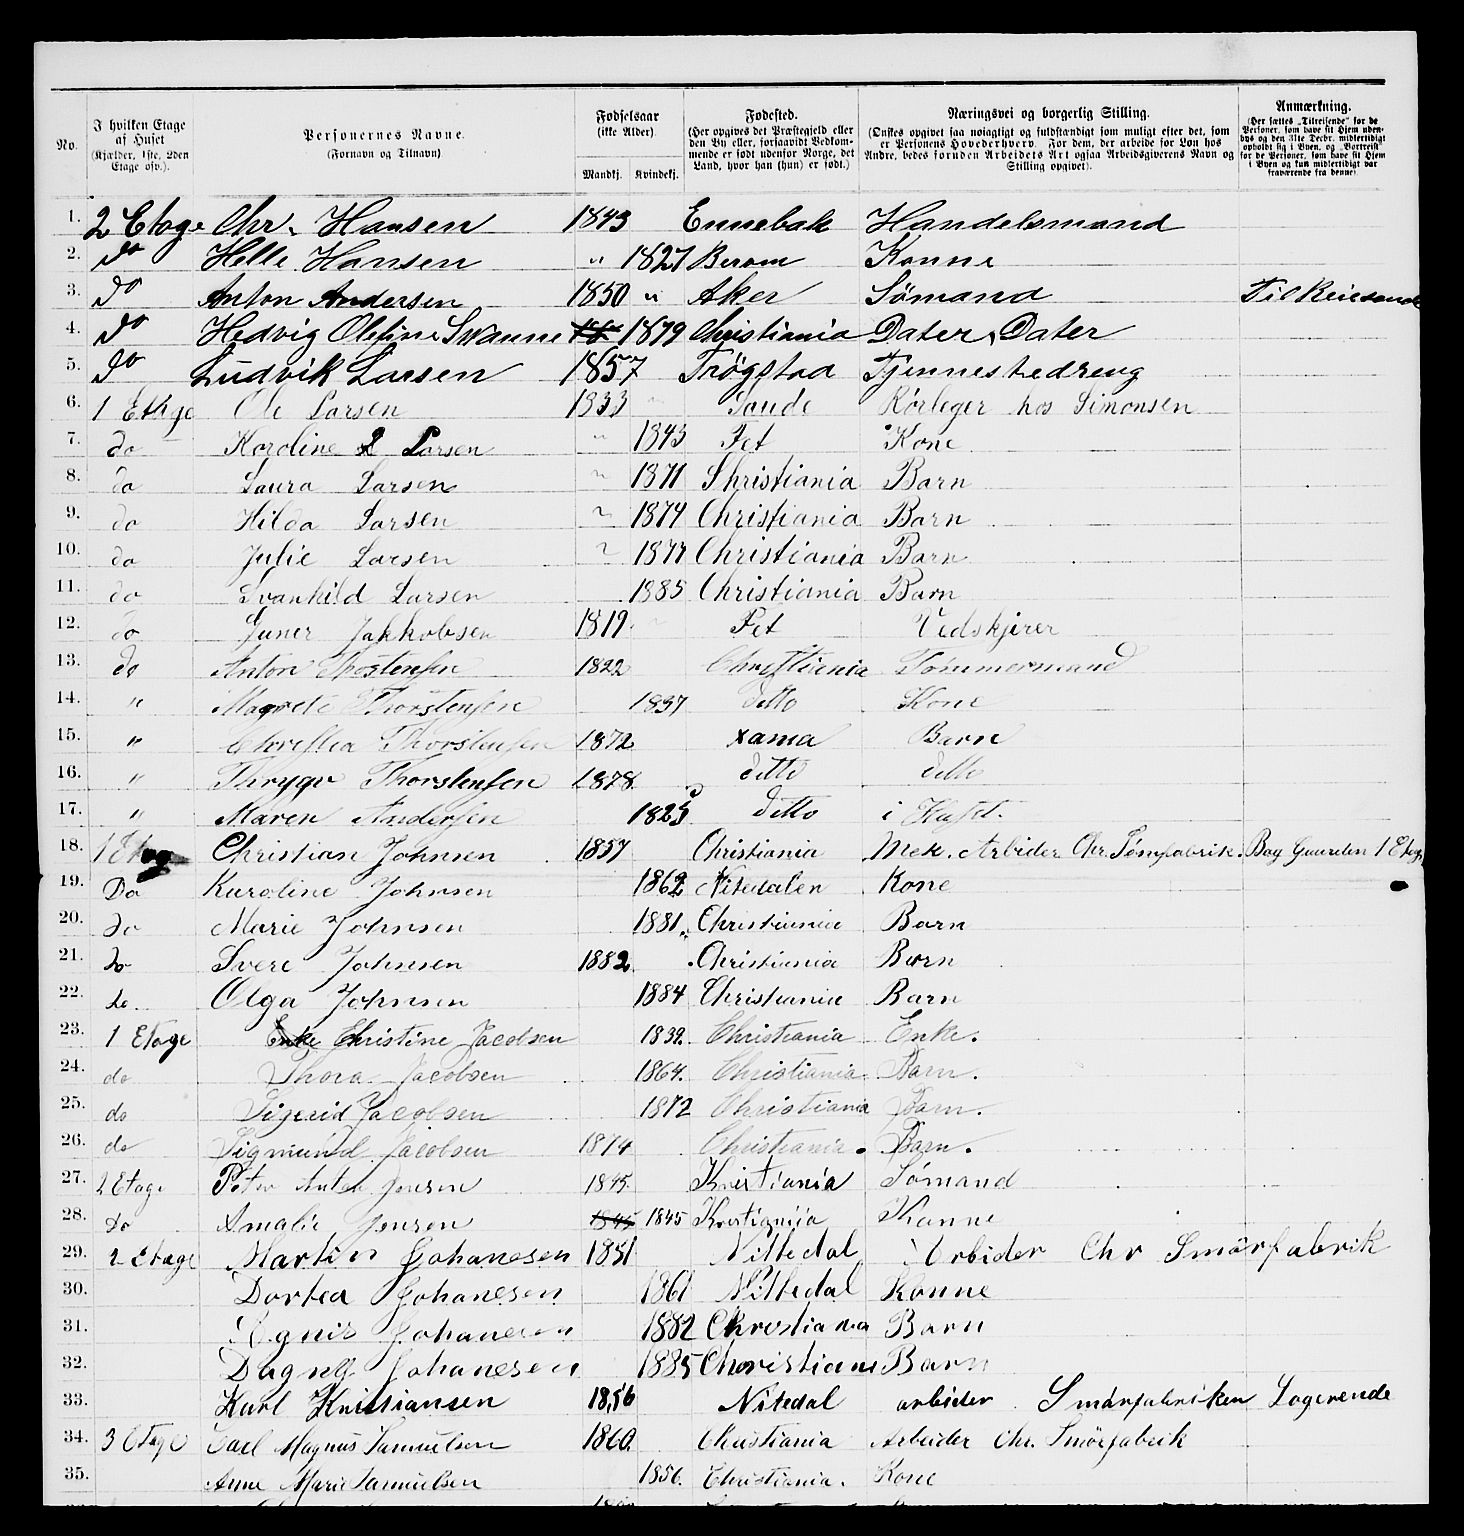 No. | I hvilken Etage af Huset (Kjælder, 1ste, 2den Etage osv.). | Personernes Navne. (Fornavn og Tilnavn) | Fødselsaar (ikke Alder) Mandkj. Kvindekj. | Fødested. (Her opgives det Præstegjeld eller den By eller, forsaavidt Vedkommende er født udenfor Norge, det Land, hvor han (hun) er født.) | Næringsvei og borgerlig Stilling. (Ønskes opgivet saa nøiagtigt og fuldstændigt som muligt efter det, som er Personens Hovederhverv. For dem, der arbeide for Løn hos Andre, bedes foruden Arbeidets Art ogsaa Arbeidsgiverens Navn og Stilling opgivet). | Anmærkning. (Her sættes „Tilreisende" for de Personer, som have sit Hjem udenbys og den 31te Decbr. midlertidigt opholdt sig i Byen, og „Bortreist" for de Personer, som have sit Hjem i Byen og kun midlertidigt var fraværende fra denne).
1. 2 Etage Chr. Hansen 1843 Ennebak Handelsmand
2. do Helle Hansen " 1827 Berom Konne
3. do Anton Andersen 1850 " Aker Sömand Tilreisende
4. do Hedvig Olefine Svanne 1879 Christiania Dater Dater
5. do Ludvik Larsen 1857 Trögstad Tjennestedreng
6. 1 Etage Ole Larsen 1833 " Sande Rörleger hos Simonsen
7. do Karoline L Larsen " 1843 Fet Kone
8. do Laura Larsen " 1871 Christiania Barn
9. do Hilda Larsen " 1874 Christiania Barn
10. do Julie Larsen " 1877 Christiania Barn
11. do Svanhild Larsen 1885 Christiania Barn
12. do Guner Jakkobsen 1819 " Fet Vedskjerer
13. do Anton Thostensen 1822 Christiania Tømmermand
14. " Magrete Thorstensen 1837 ditto Kone
15. " Thorstensen 1872 sama Barn
16. " Thrygv Thorstensen 1878 ditto ditto
17. " Maren Andersen 1825 ditto i Huset.
18. 1 Etag Christian Johnsen 1857 Christiania Mek. Arbider Chr. Sømfabrik. Bag Gaarden 1 Etag
19. Do Karoline Johnsen 1862 Nitedalen Kone
20. do Marie Johnsen 1881 Christiania Barn
21. do Svere Johnsen 1882 Christiania Barn
22. do Olga Johnsen 1884 Christiania Barn
23. 1 Etage Enke Christine Jacobsen 1832 Christiania Enke.
24. do Thora Jacobsen 1864. Christiania Barn.
25. do Sigerid Jacobsen 1872 Christiania Barn.
26. do Sigmund Jacobsen 1874 Christiania. Barn.
27. 2 Etage Peter Anton Jensen 1845. Kristiania Sömand
28. do Amalie Jensen 1845 1845 Kristianiia Kanne
29. 2 Etage Martin Johanesen 1851 Nittedal Arbider Chr Smörfabrik
30. Dortea Johanesen 1861 Nittedal Konne
31. Agnis Johanesen 1882 Christiania Barn
32. Dagny Johanesen 1885 Christiani Barn
33. Karl Kristiansen 1856 Nitedal arbider Smörfabriken Logerende
34. 3 Etage Carl Magnus Samuelsen 1860. Christiania Arbeider Chr. Smörfabrik
35. Anne Marie Samuelsen 1856. Christiania. Kone